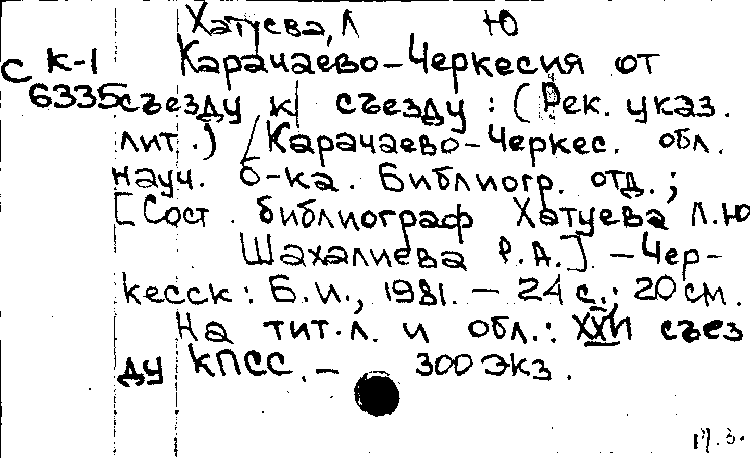 Хатуева, Л Ю
С К-1 Карачаево-Черкесия от
6335 съезду к съезду : (Рек. указ.
лит.) / Карачаево-Черкес. обл.
науч. б-ка. Библиогр. отд. ;
[Сост. библиограф Хатуева Л.Ю
Шахалиева Р.А.]. – Чер-
кесск : Б.и., 1981. – 24 с. ; 20 см.
На тит. л. и обл.: XXVI съез
ду КПСС. – 300 экз.